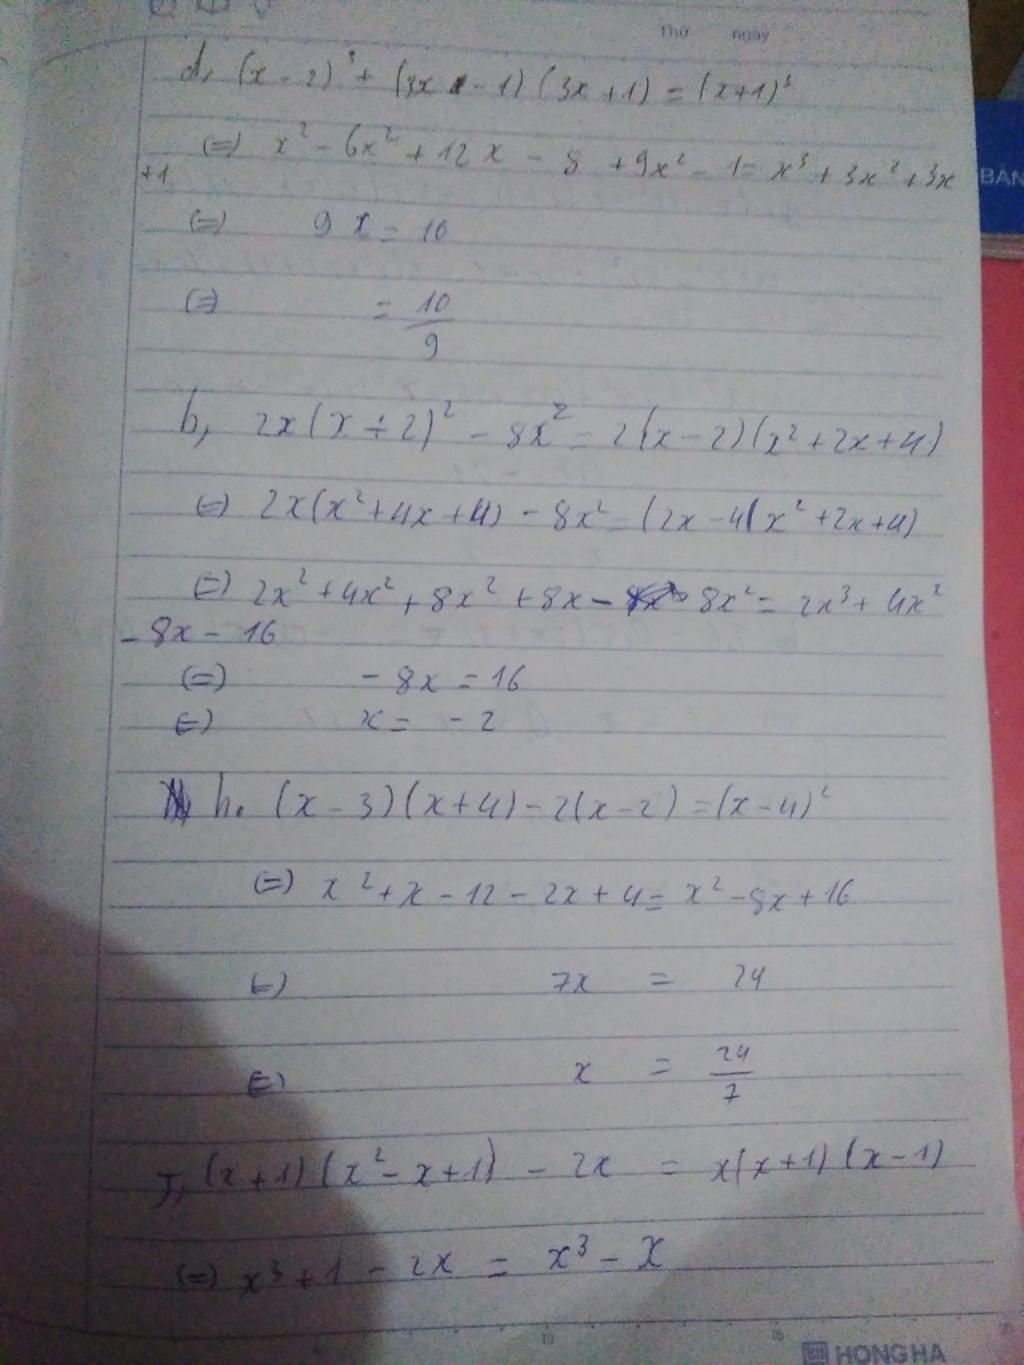 Thứ ngày
d, (x - 2)³ + (3x - 1)(3x + 1) = (x+1)³
(=) x² - 6x² + 12x - 8 + 9x² - 1 = x³ + 3x² + 3x
+1
BẢN
(=) 9x = 10
(=) = 10/9
b, 2x(x + 2)² - 8x² = 2(x - 2)(x² + 2x + 4)
(=) 2x(x² + 4x + 4) - 8x² = (2x - 4(x² + 2x + 4)
(=) 2x² + 4x² + 8x² + 8x - 8x² = 2x³ + 4x²
- 8x - 16
(=) - 8x = 16
(=) x = - 2
h. (x - 3)(x + 4) - 2(x - 2) = (x - 4)²
(=) x² + x - 12 - 2x + 4 = x² - 8x + 16
(=) 7x = 24
(=) x = 24/7
J, (x + 1)(x² - x + 1) - 2x = x(x + 1)(x - 1)
(=) x³ + 1 - 2x = x³ - x
10 15
HONG HA